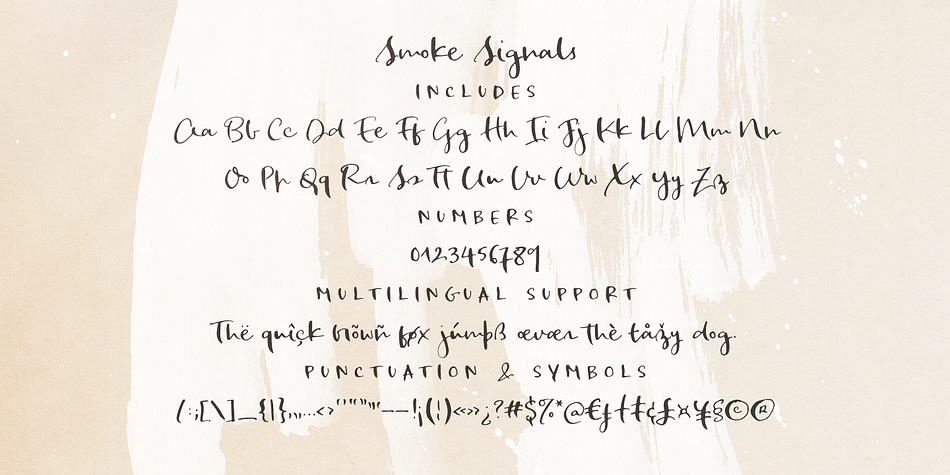 Smoke Signals
INCLUDES
Aa Bb Cc Dd Ee Ff Gg Hh Ii Jj Kk Ll Mm Nn
Oo Pp Qq Rr Ss Tt Uu Vv Ww Xx Yy Zz
NUMBERS
0123456789
MULTILINGUAL SUPPORT
Thë quîçk brõwñ føx júmpß œvær thè łåžy dog.
PUNCTUATION & SYMBOLS
/:;[\]_{|},„…‹›'"‘’“”–—!¡(¦)«»¿?#$%*@€ƒ†‡¢£¤¥§©®